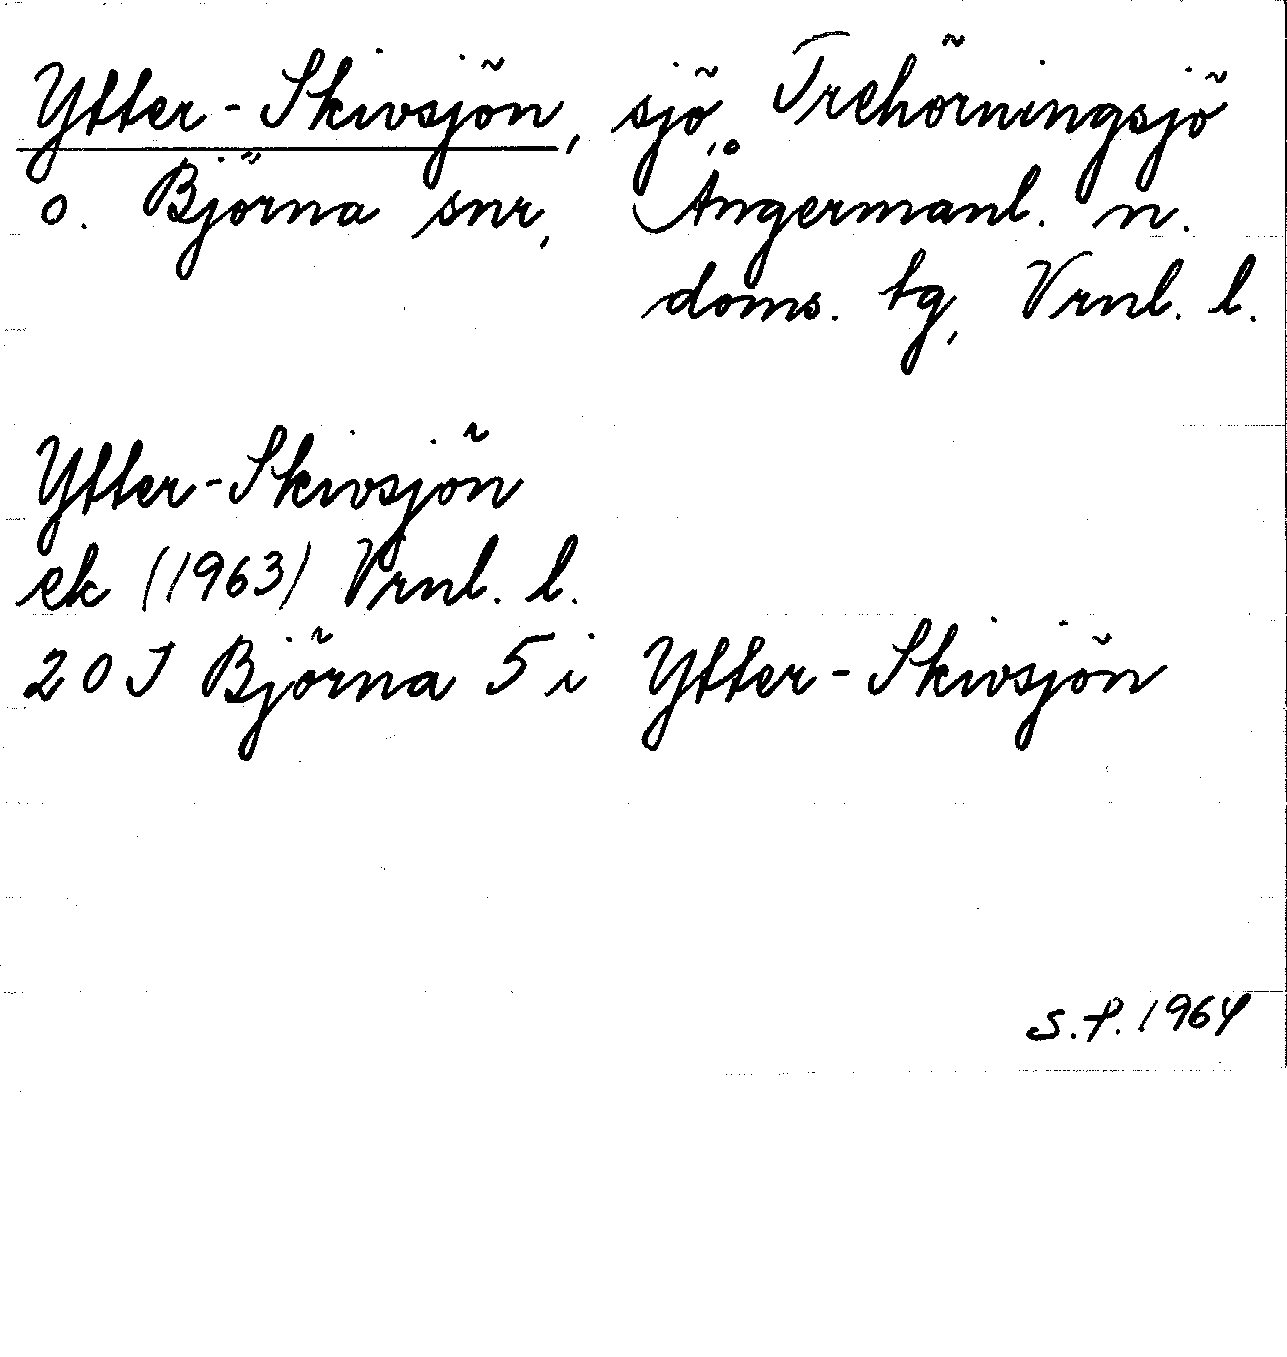 Ytter-Skivsjön, sjö, Trehörningsjö
o. Björna snr, Ångermanl. n.
doms. tg, Vrnl. l.
Ytter-Skivsjön
ek (1963) Vrnl. l.
20 J Björna 5 i Ytter-Skivsjön
S.P. 1964